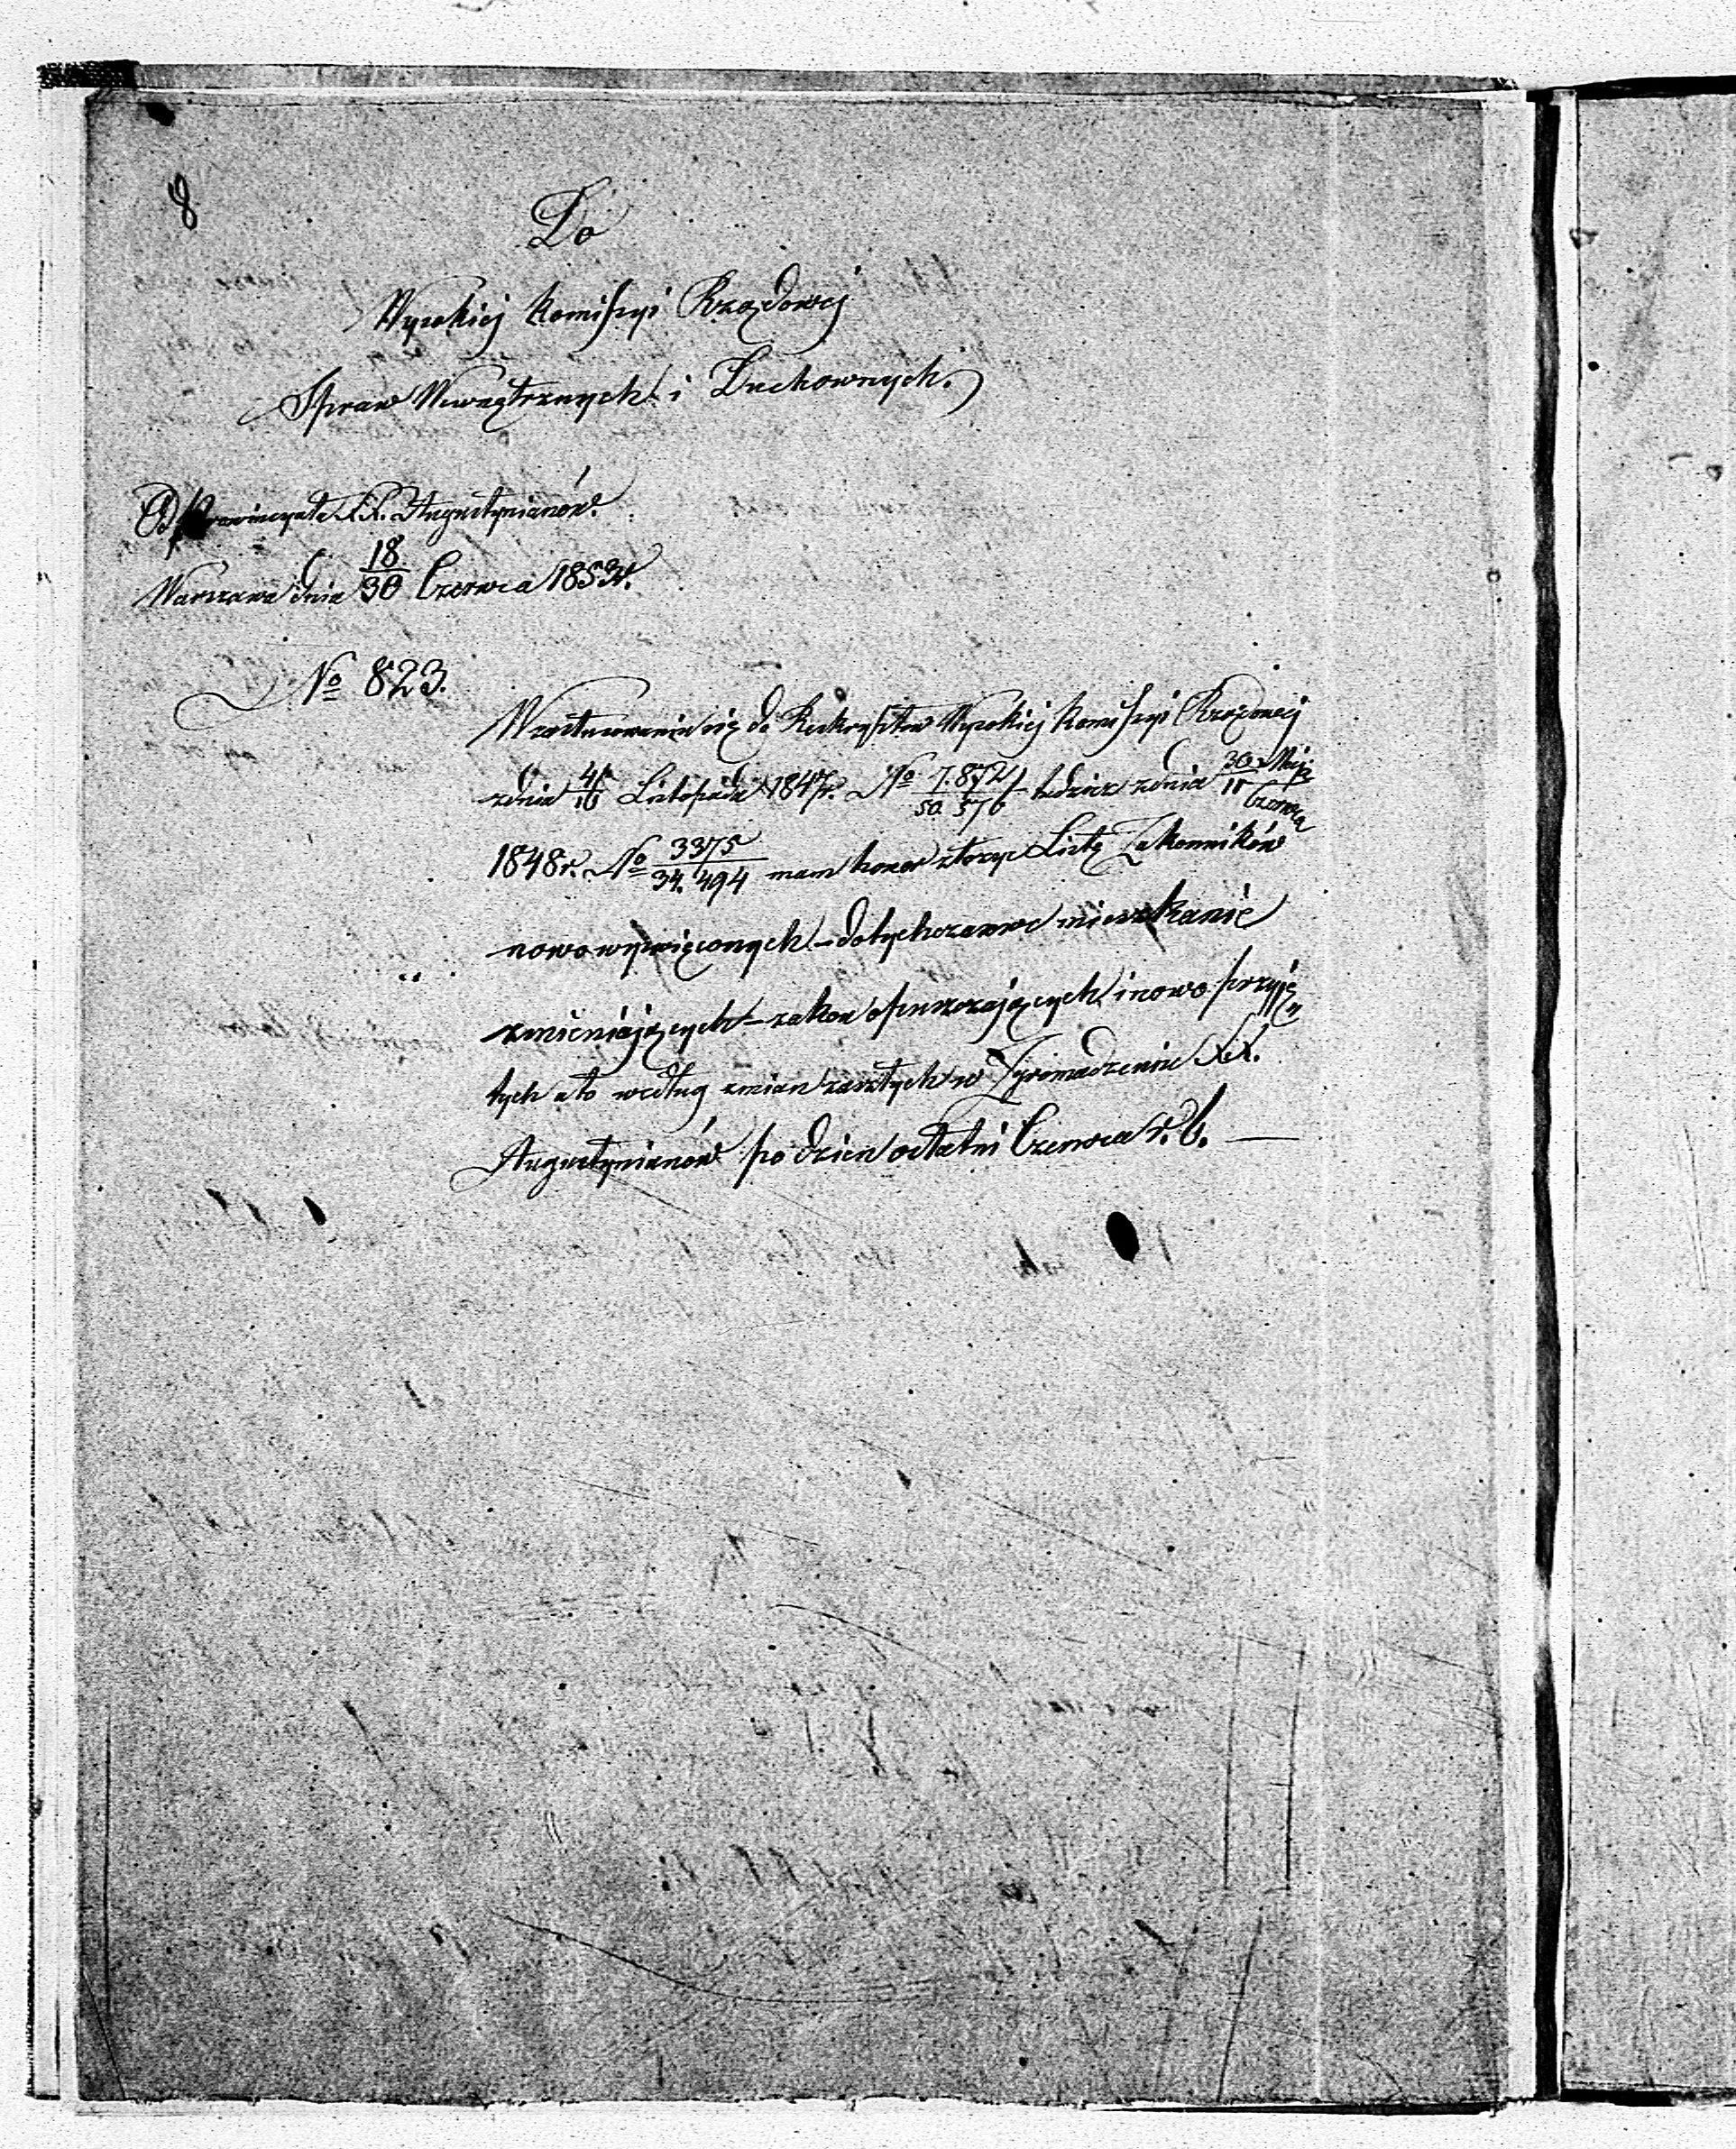 8
Do
Wysokiej Komissyi Rządowej
Spraw Wewnętrznych i Duchownych.
Od Prowincyała XX. Augustynianów.
Warszawa dnia 18/30 Czerwca 1853 r.
No 823.
W zastosowaniu się do Reskryptów Wysokiej Komissyi Rządowej
z dnia 4/16 Listopada 1847r. No 7.872/50.576 tudzież z dnia 30 Maja/11 Czerwca
1848r. No 3375/34.494 mam honor złożyć Listę Zakonników
nowo wyświęconych – dotychczasowe mieszkanie
zmieniających – zakon opuszczających, i nowo przyję-
tych a to według zmian zaszłych w Zgromadzeniu XX.
Augustynianów po dzień ostatni Czerwca r. b. —